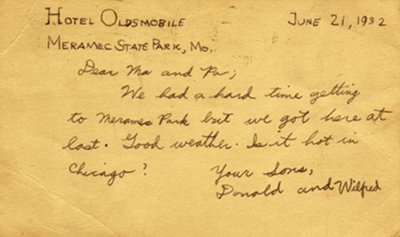 Hotel Oldsmobile
June 21, 1932
Meramec State Park, Mo.
Dear Ma and Pa;
We had a hard time getting
to Meramec Park but we got here at
last. Good weather. Is it hot in
Chicago?
Your Sons,
Donald and Wilfred